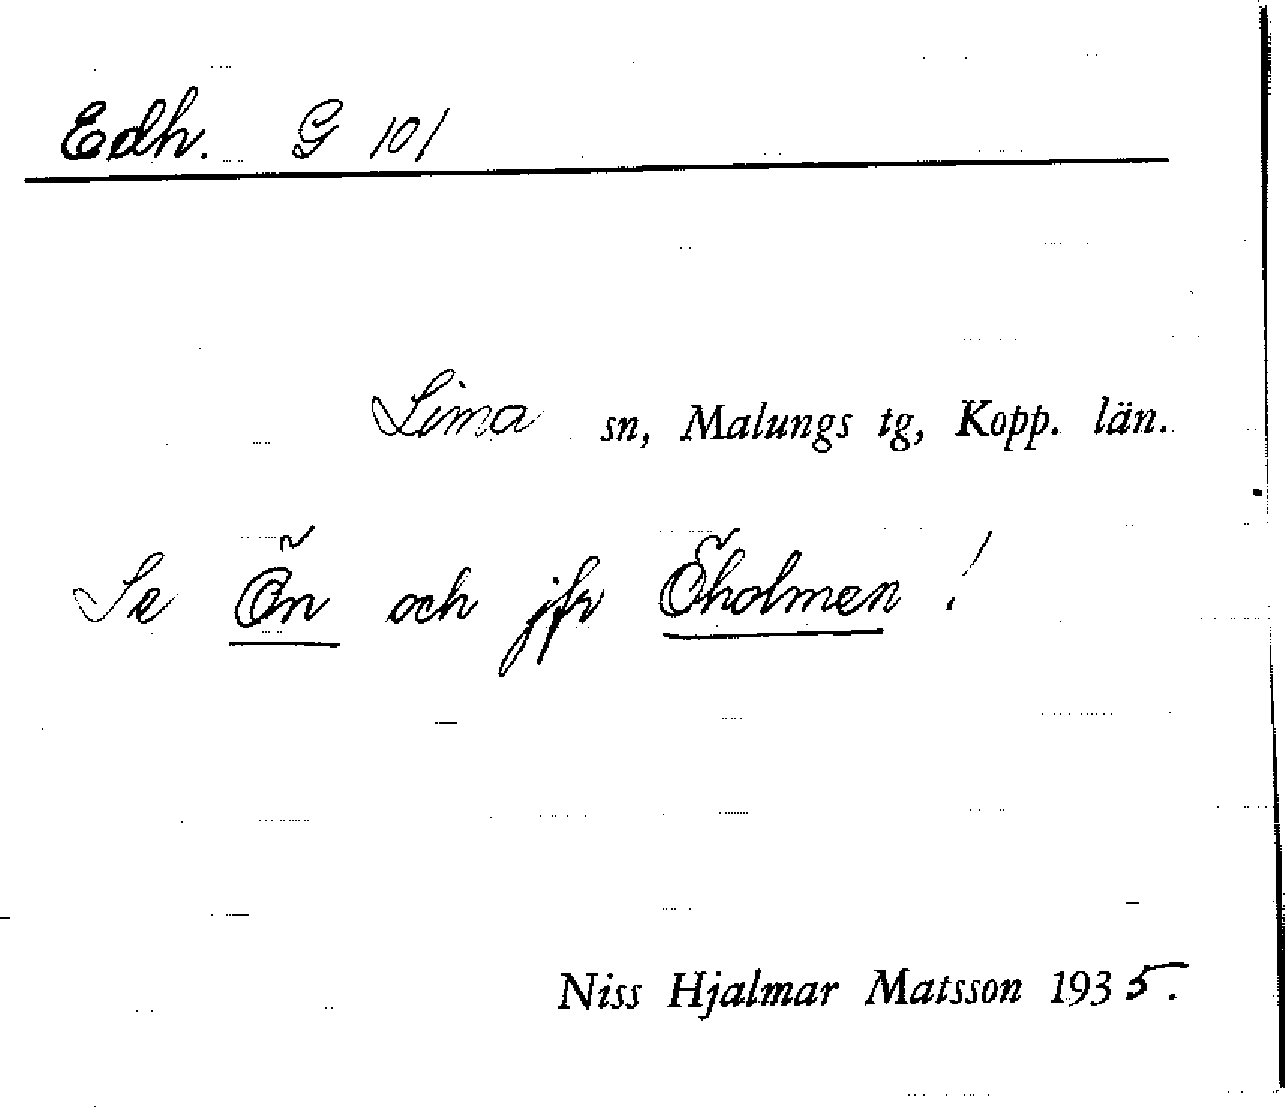 Edh. G 101
Lima sn, Malungs tg, Kopp. län.
Se Ön och jfr Öholmen!
Niss Hjalmar Matsson 1935.